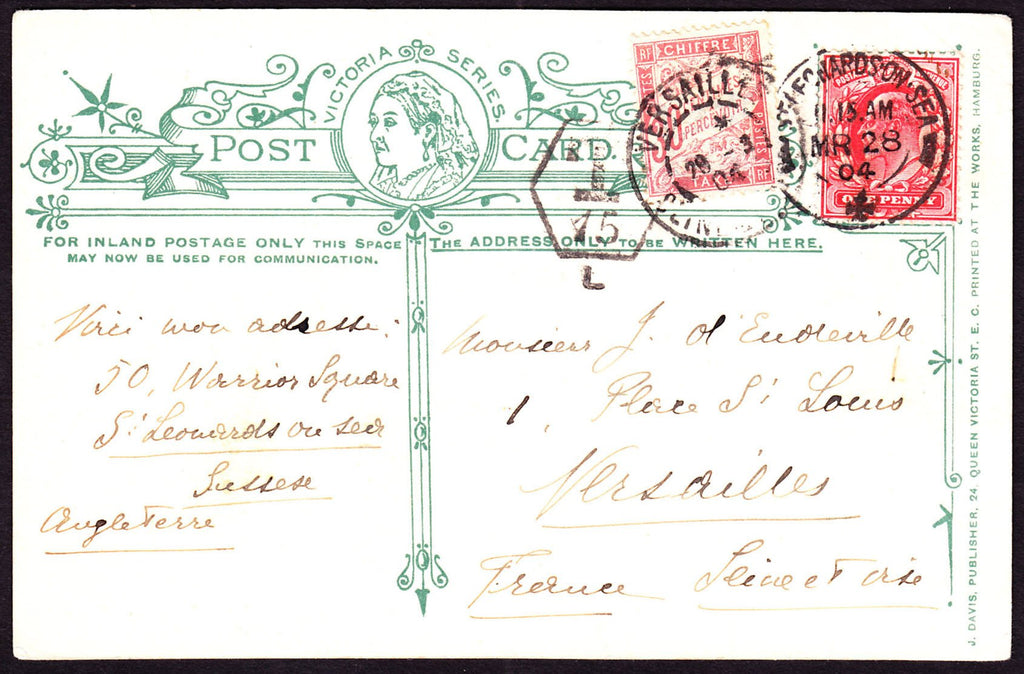 VICTORIA SERIES.
POST CARD.
FOR INLAND POSTAGE ONLY THIS SPACE
MAY NOW BE USED FOR COMMUNICATION.
THE ADDRESS ONLY TO BE WRITTEN HERE.
RF CHIFFRE
POSTES
PERCEVOIR
TAXE RF
VERSAILLES
*
28 - 3
04
T
15
L
ST LEONARDS ON SEA
MR 28
04
ONE PENNY
Voici mon adresse:
50, Warrior Square
St Leonards on sea
Sussex
Angleterre
Monsieur J. d'Eudeville
1, Place St Louis
Versailles
France Seine et Oise
J. DAVIS, PUBLISHER, 24, QUEEN VICTORIA ST. E. C. PRINTED AT THE WORKS, HAMBURG.